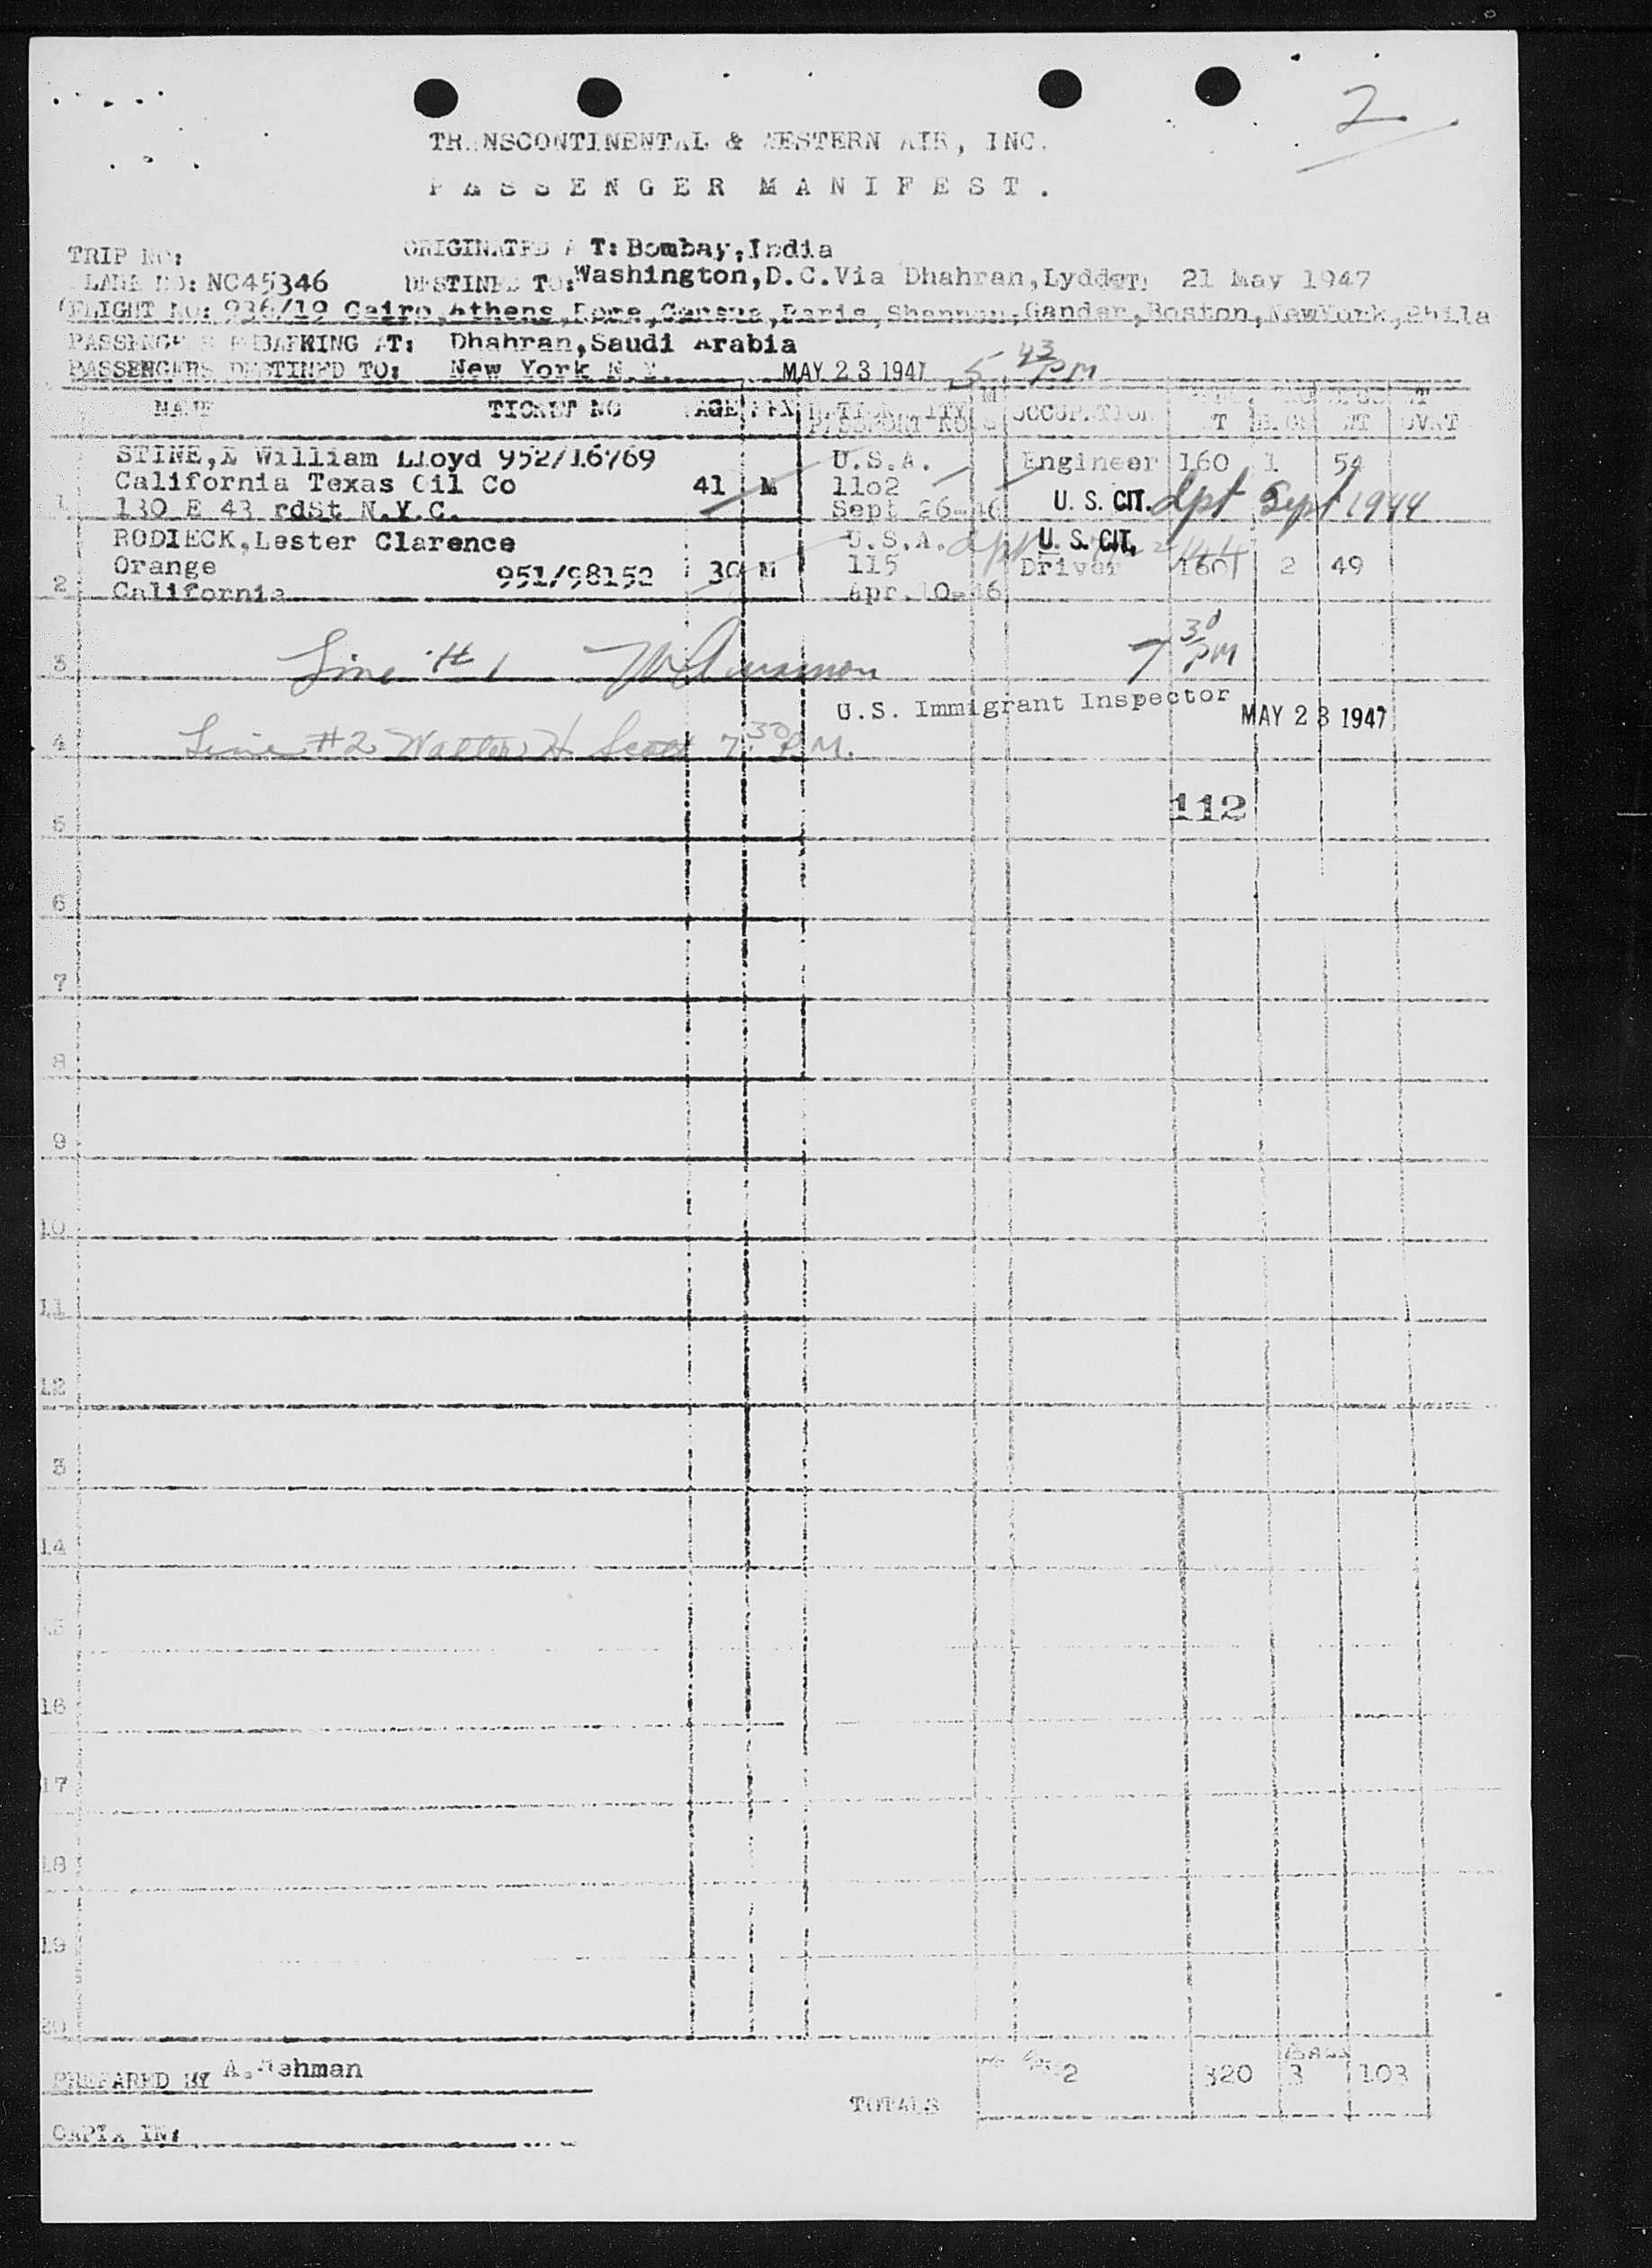 2
TRANSCONTINENTAL & WESTERN AIR, INC.
PASSENGER MANIFEST.
TRIP NO: ORIGINATED AT: Bombay, India
PLANE NO: NC45346 DESTINED TO: Washington,D.C.Via Dhahran,Lydda 21 May 1947
FLIGHT NO: 936/19 Cairo,Athens,Rome,Geneva,Paris,Shannon,Gander,Boston,NewYork,Phila
PASSENGERS EMBARKING AT: Dhahran,Saudi Arabia
PASSENGERS DESTINED TO: New York N.Y. MAY 23 1947 5 43 PM
NAME TICKET NO AGE SEX PASSPORT NO OCCUPATION
STINE, William Lloyd 952/16769 U.S.A. Engineer 160 1 54
California Texas Oil Co 41 M 1102 U. S. CIT. dpt Sept 1944
1 130 E 43 rdSt N.Y.C. Sept 26-46
RODIECK,Lester Clarence U.S.A. dpt U. S. CIT.
Orange 951/98152 30 M 115 Driver 160 2 49
2 California Apr.10-46
3 Line #1 7 30 PM
U.S. Immigrant Inspector MAY 23 1947
4 Line #2 Walter H Scott 7:30 P.M.
112
5
6
7
8
9
10
11
12
3
14
15
16
17
18
19
20
PREPARED BY A. Rehman 2 320 3 103
TOTALS
CAPTAIN: